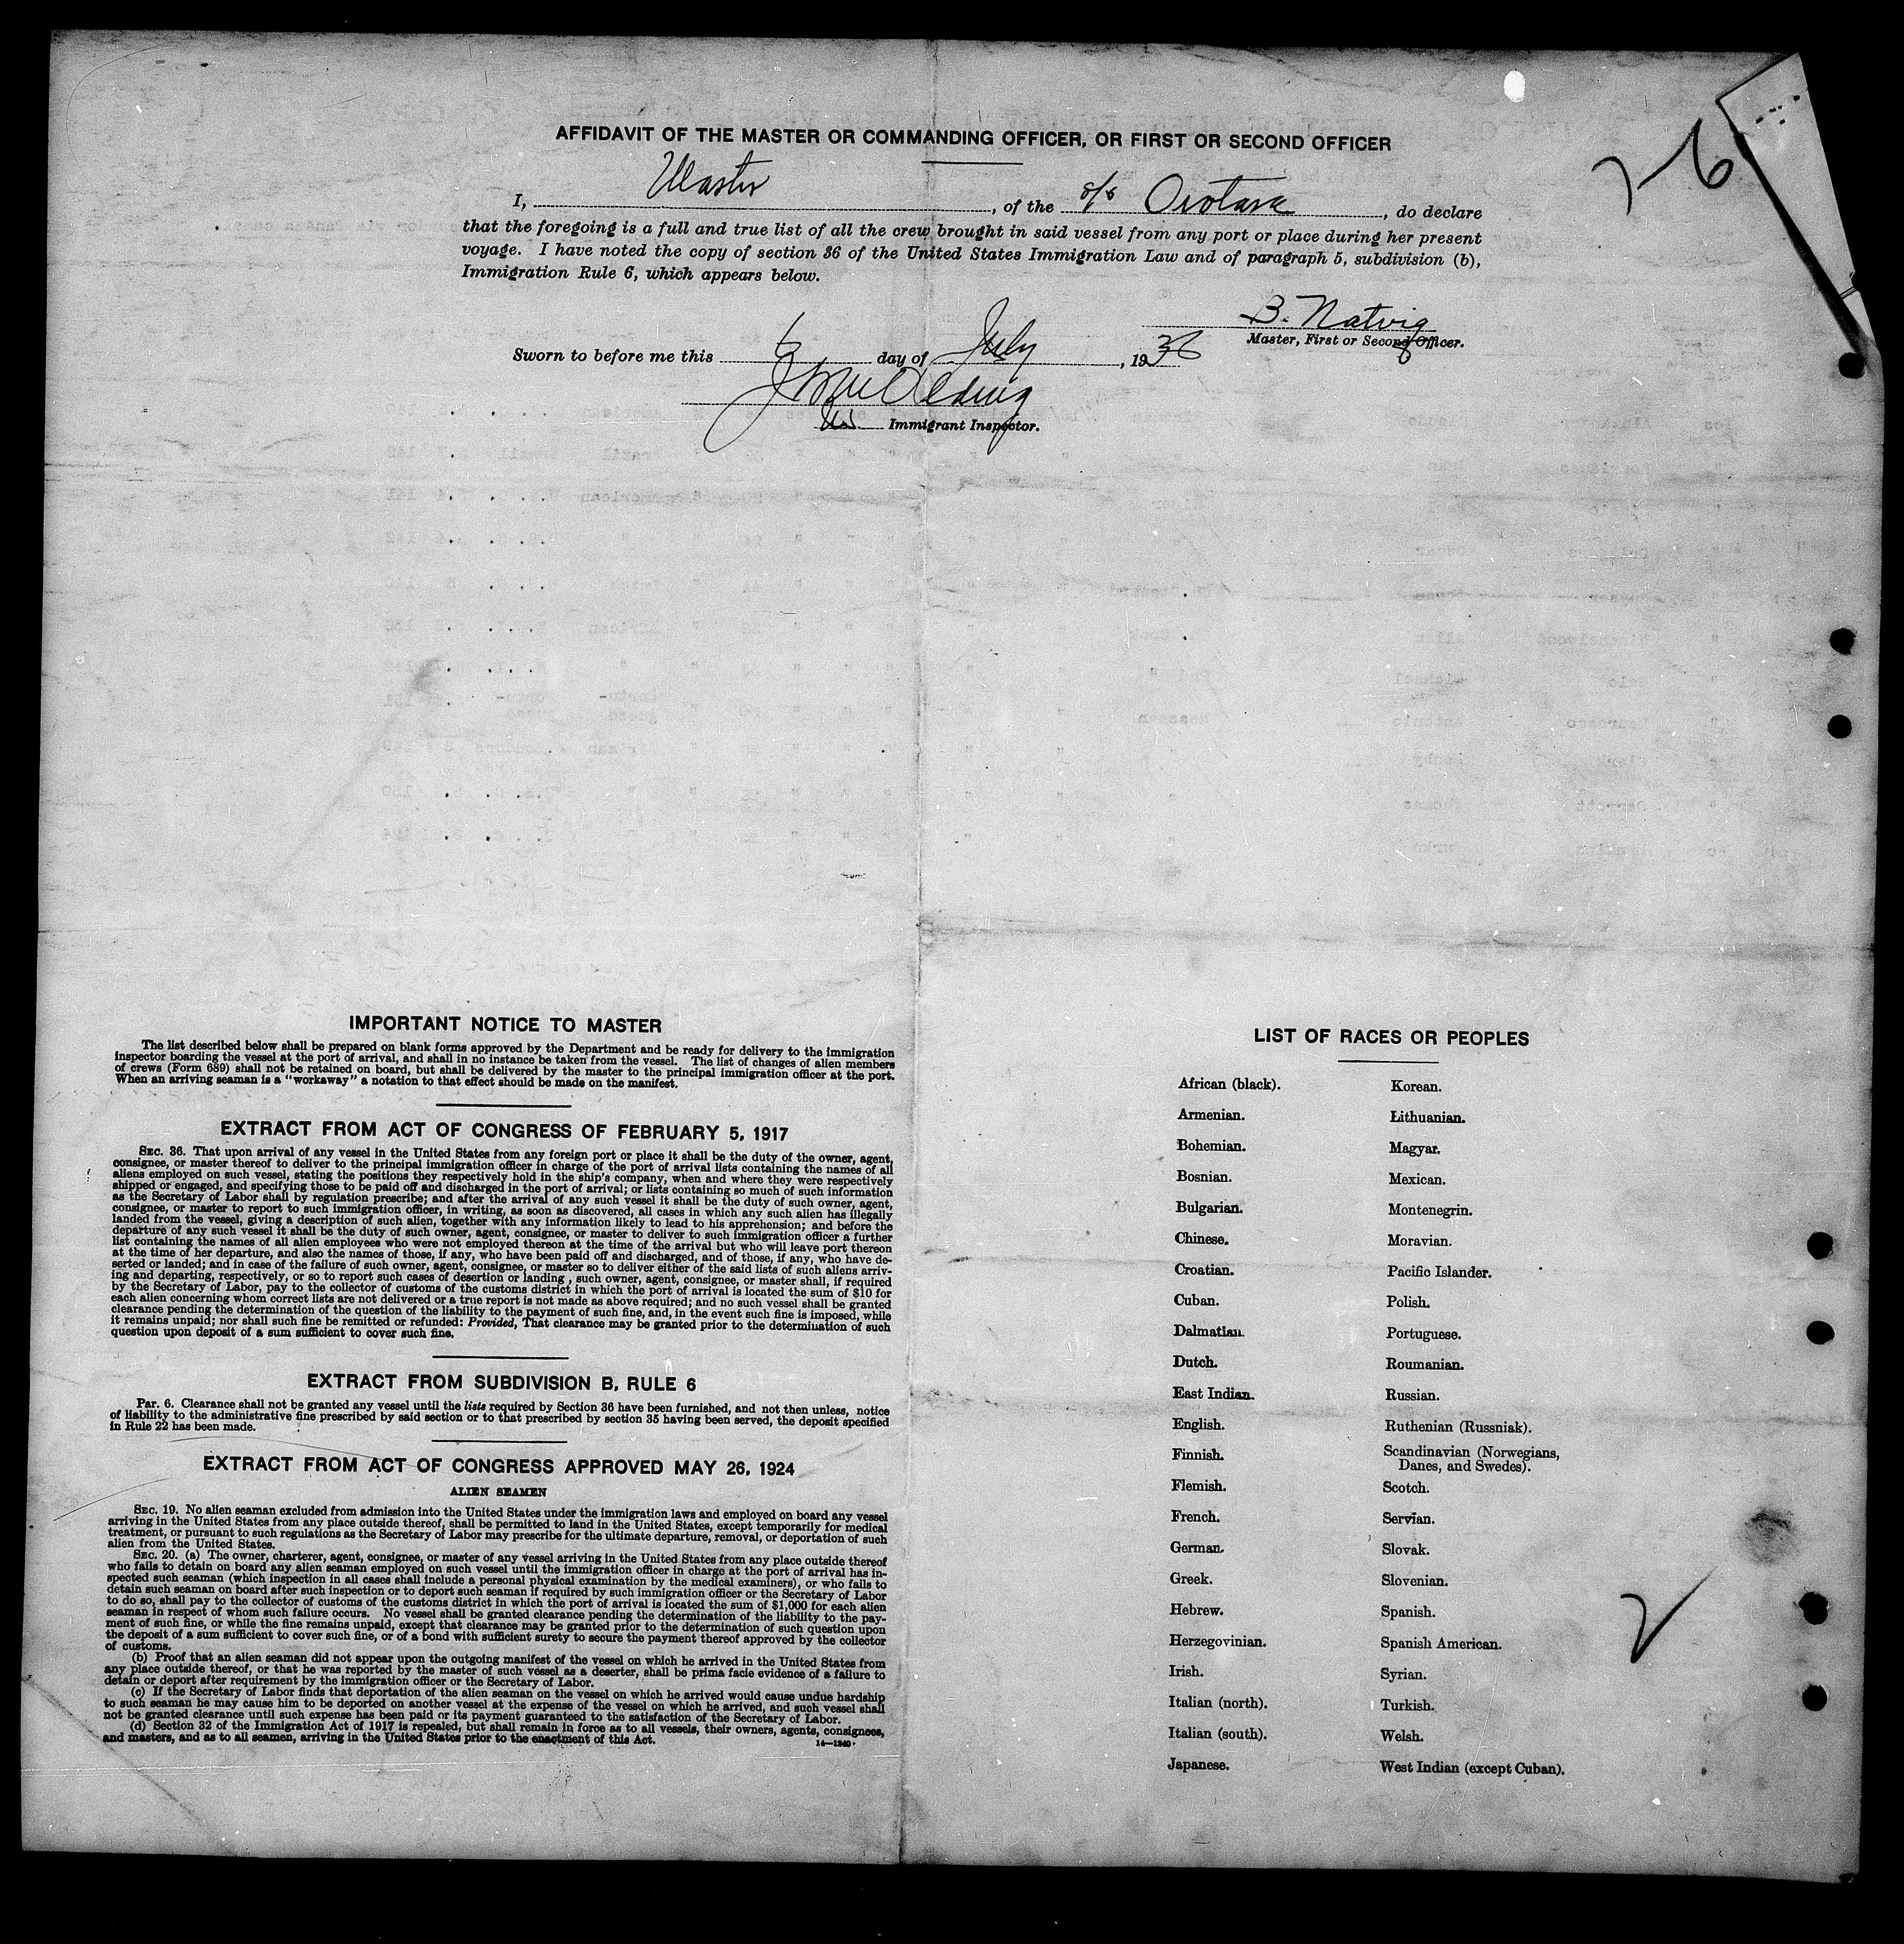 AFFIDAVIT OF THE MASTER OR COMMANDING OFFICER, OR FIRST OR SECOND OFFICER
7-6
I, Master, of the s/s Orotava, do declare
that the foregoing is a full and true list of all the crew brought in said vessel from any port or place during her present
voyage. I have noted the copy of section 36 of the United States Immigration Law and of paragraph 5, subdivision (b),
Immigration Rule 6, which appears below.
B. Natvig
Master, First or Second Officer.
Sworn to before me this 6 day of July, 1936
Immigrant Inspector.
IMPORTANT NOTICE TO MASTER
The list described below shall be prepared on blank forms approved by the Department and be ready for delivery to the immigration
inspector boarding the vessel at the port of arrival, and shall in no instance be taken from the vessel. The list of changes of alien members
of crews (Form 689) shall not be retained on board, but shall be delivered by the master to the principal immigration officer at the port.
When an arriving seaman is a "workaway" a notation to that effect should be made on the manifest.
EXTRACT FROM ACT OF CONGRESS OF FEBRUARY 5, 1917
SEC. 36. That upon arrival of any vessel in the United States from any foreign port or place it shall be the duty of the owner, agent,
consignee, or master thereof to deliver to the principal immigration officer in charge of the port of arrival lists containing the names of all
aliens employed on such vessel, stating the positions they respectively hold in the ship's company, when and where they were respectively
shipped or engaged, and specifying those to be paid off and discharged in the port of arrival; or lists containing so much of such information
as the Secretary of Labor shall by regulation prescribe; and after the arrival of any such vessel it shall be the duty of such owner, agent,
consignee, or master to report to such immigration officer, in writing, as soon as discovered, all cases in which any such alien has illegally
landed from the vessel, giving a description of such alien, together with any information likely to lead to his apprehension; and before the
departure of any such vessel it shall be the duty of such owner, agent, consignee, or master to deliver to such immigration officer a further
list containing the names of all alien employees who were not employed thereon at the time of the arrival but who will leave port thereon
at the time of her departure, and also the names of those, if any, who have been paid off and discharged, and of those, if any, who have de-
serted or landed; and in case of the failure of such owner, agent, consignee, or master so to deliver either of the said lists of such aliens arriv-
ing and departing, respectively, or so to report such cases of desertion or landing, such owner, agent, consignee, or master shall, if required
by the Secretary of Labor, pay to the collector of customs of the customs district in which the port of arrival is located the sum of $10 for
each alien concerning whom correct lists are not delivered or a true report is not made as above required; and no such vessel shall be granted
clearance pending the determination of the question of the liability to the payment of such fine, and, in the event such fine is imposed, while
it remains unpaid; nor shall such fine be remitted or refunded: Provided, That clearance may be granted prior to the determination of such
question upon deposit of a sum sufficient to cover such fine.
EXTRACT FROM SUBDIVISION B, RULE 6
PAR. 6. Clearance shall not be granted any vessel until the lists required by Section 36 have been furnished, and not then unless, notice
of liability to the administrative fine prescribed by said section or to that prescribed by section 35 having been served, the deposit specified
in Rule 22 has been made.
EXTRACT FROM ACT OF CONGRESS APPROVED MAY 26, 1924
ALIEN SEAMEN
SEC. 19. No alien seaman excluded from admission into the United States under the immigration laws and employed on board any vessel
arriving in the United States from any place outside thereof, shall be permitted to land in the United States, except temporarily for medical
treatment, or pursuant to such regulations as the Secretary of Labor may prescribe for the ultimate departure, removal, or deportation of such
alien from the United States.
SEC. 20. (a) The owner, charterer, agent, consignee, or master of any vessel arriving in the United States from any place outside thereof
who fails to detain on board any alien seaman employed on such vessel until the immigration officer in charge at the port of arrival has in-
spected such seaman (which inspection in all cases shall include a personal physical examination by the medical examiners), or who fails to
detain such seaman on board after such inspection or to deport such seaman if required by such immigration officer or the Secretary of Labor
to do so, shall pay to the collector of customs of the customs district in which the port of arrival is located the sum of $1,000 for each alien
seaman in respect of whom such failure occurs. No vessel shall be granted clearance pending the determination of the liability to the pay-
ment of such fine, or while the fine remains unpaid, except that clearance may be granted prior to the determination of such question upon
the deposit of a sum sufficient to cover such fine, or of a bond with sufficient surety to secure the payment thereof approved by the collector
of customs.
(b) Proof that an alien seaman did not appear upon the outgoing manifest of the vessel on which he arrived in the United States from
any place outside thereof, or that he was reported by the master of such vessel as a deserter, shall be prima facie evidence of a failure to
detain or deport after requirement by the immigration officer or the Secretary of Labor.
(c) If the Secretary of Labor finds that deportation of the alien seaman on the vessel on which he arrived would cause undue hardship
to such seaman he may cause him to be deported on another vessel at the expense of the vessel on which he arrived, and such vessel shall
not be granted clearance until such expense has been paid or its payment guaranteed to the satisfaction of the Secretary of Labor.
(d) Section 32 of the Immigration Act of 1917 is repealed, but shall remain in force as to all vessels, their owners, agents, consignees,
and masters, and as to all seamen, arriving in the United States prior to the enactment of this Act.
14—1240
LIST OF RACES OR PEOPLES
African (black).
Armenian.
Bohemian.
Bosnian.
Bulgarian.
Chinese.
Croatian.
Cuban.
Dalmatian.
Dutch.
East Indian.
English.
Finnish.
Flemish.
French.
German.
Greek.
Hebrew.
Herzegovinian.
Irish.
Italian (north).
Italian (south).
Japanese.
Korean.
Lithuanian.
Magyar.
Mexican.
Montenegrin.
Moravian.
Pacific Islander.
Polish.
Portuguese.
Roumanian.
Russian.
Ruthenian (Russniak).
Scandinavian (Norwegians,
Danes, and Swedes).
Scotch.
Servian.
Slovak.
Slovenian.
Spanish.
Spanish American.
Syrian.
Turkish.
Welsh.
West Indian (except Cuban).